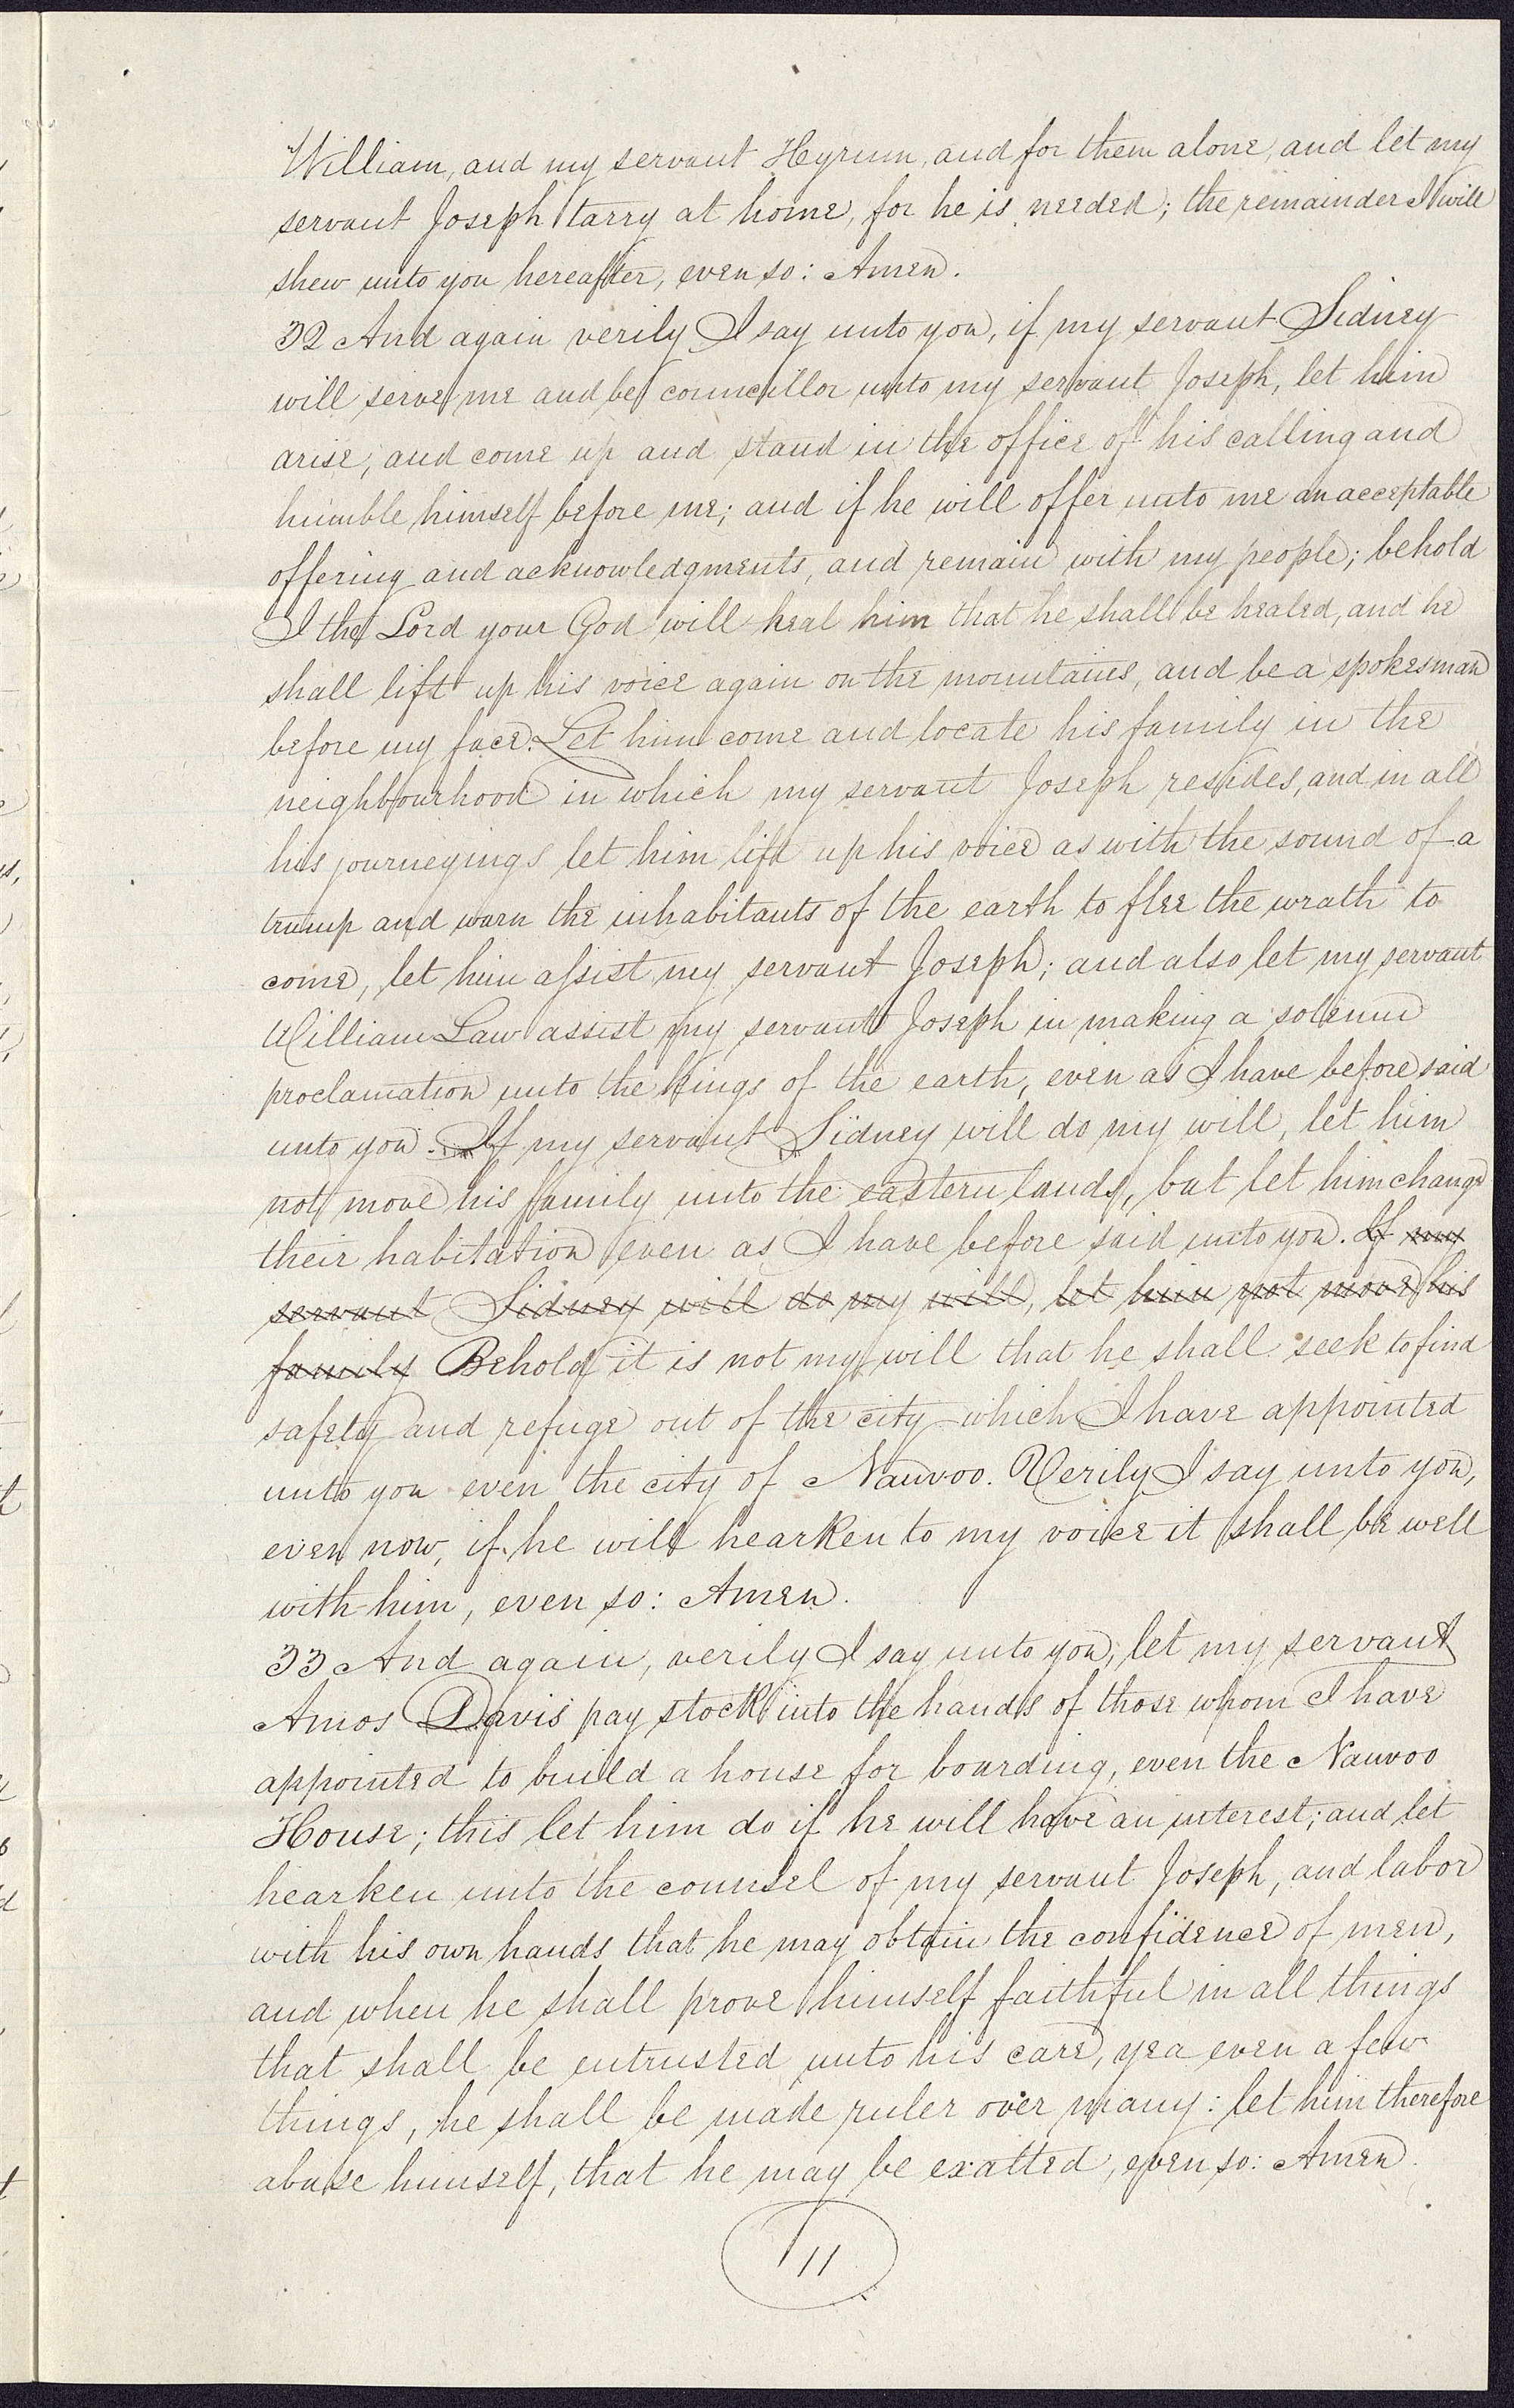 William, and my servant Hyrum, and for them alone, and let my
servant Joseph tarry at home, for he is needed; the remainder I will
shew unto you hereafter, even so: Amen.
32 And again verily I say unto you, if my servant Sidney
will serve me and be councillor unto my servant Joseph, let him
arise, and come up and stand in the office of his calling and
humble himself before me; and if he will offer unto me an acceptable
offering and acknowledgments, and remain with my people; behold
I the Lord your God will heal him that he shall be healed, and he
shall lift up his voice again on the mountains, and be a spokesman
before my face. Let him come and locate his family in the
neighbourhood in which my servant Joseph resides, and in all
his journeyings let him lift up his voice as with the sound of a
trump and warn the inhabitants of the earth to flee the wrath to
come, let him assist my servant Joseph; and also let my servant
William Law assist my servant Joseph in making a solemn
proclamation unto the kings of the earth, even as I have before said
unto you. If my servant Sidney will do my will, let him
not move his family unto the eastern lands, but let him change
their habitation even as I have before said unto you. If my
servant Sidney will do my will, let him not move his
family Behold it is not my will that he shall seek to find
safety and refuge out of the city which I have appointed
unto you even the city of Nauvoo. Verily I say unto you,
even now, if he will hearken to my voice it shall be well
with him, even so: Amen.
33 And again, verily I say unto you, let my servant
Amos Davis pay stock into the hands of those whom I have
appointed to build a house for boarding, even the Nauvoo
House; this let him do if he will have an interest; and let
hearken unto the counsel of my servant Joseph, and labor
with his own hands that he may obtain the confidence of men,
and when he shall prove himself faithful in all things
that shall be entrusted unto his care, yea even a few
things, he shall be made ruler over many: let him therefore
abase himself, that he may be exalted, even so: Amen.
11